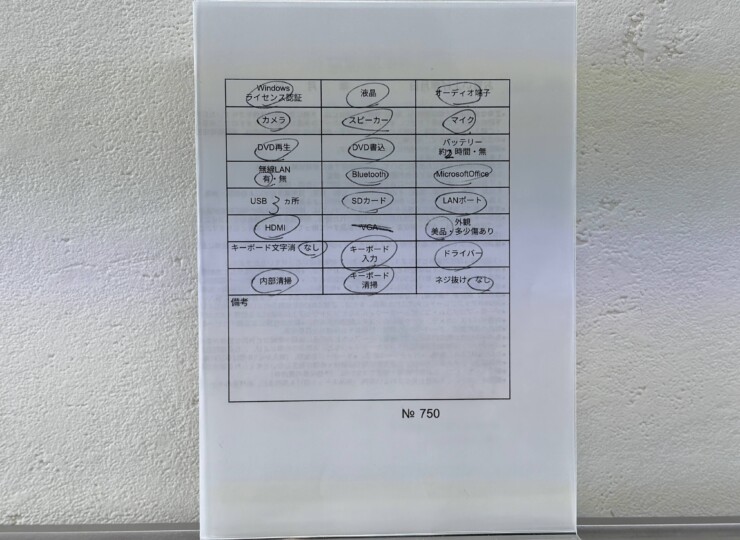 Windows
ライセンス認証
液晶
オーディオ端子
カメラ
スピーカー
マイク
DVD再生
DVD書込
バッテリー
約2時間・無
無線LAN
有・無
Bluetooth
MicrosoftOffice
USB 3 カ所
SDカード
LANポート
HDMI
VGA
外観
美品・多少傷あり
キーボード文字消 なし
キーボード
入力
ドライバー
内部清掃
キーボード
清掃
ネジ抜け なし
備考
№ 750